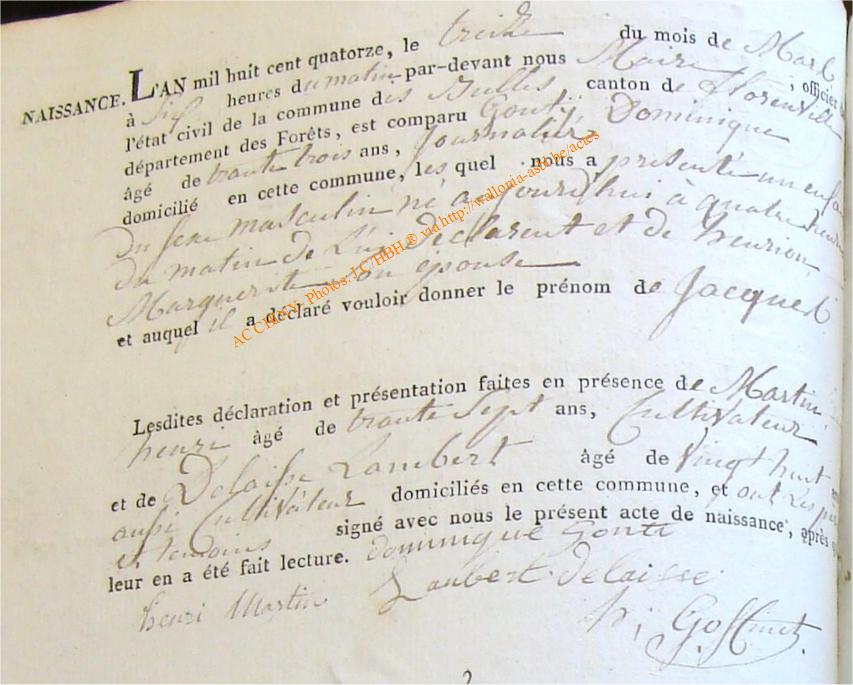 NAISSANCE. L'AN mil huit cent quatorze, le treize du mois de Mars
à six heures du matin par-devant nous Maire, officier
l'état civil de la commune des Bulles canton de florenville
département des Forêts, est comparu Gonti Dominique
âgé de trante trois ans, Journalier
domicilié en cette commune, lequel nous a présenté un enfant
Du sexe masculin né aujourd'hui à quatre heures
Du matin de Lui déclarent et de henrion
Marguerite son épouse
et auquel il a déclaré vouloir donner le prénom de Jacques
Lesdites déclaration et présentation faites en présence de Martin
henri âgé de trante Sept ans, Cultivateur
et de Delaisse Lambert âgé de Vingt huit
aussi Cultivateur domiciliés en cette commune, et ont Les
et temoins signé avec nous le présent acte de naissance, après
leur en a été fait lecture. dominique Gonti
henri Martin Lambert delaisse
Goffinet
ACCHACY Photos: LC/HBH ® via http://wallonia-asbl.be/actes